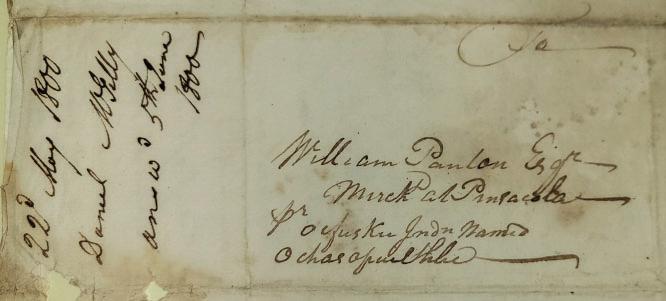 22d May 1800
Daniel McGilly
answd 5th June
1800
To
William Panton Esqr
Mercht at Pensacola
pr Ocfuskee Indn Named